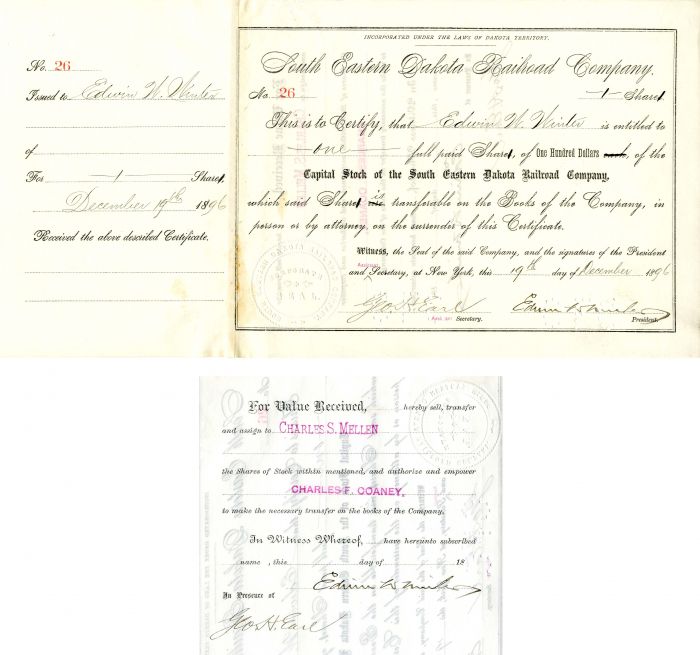 No. 26
Issued to Edwin W. Winter
of
For 1 Share
December 19th 1896
Received the above described Certificate.
INCORPORATED UNDER THE LAWS OF DAKOTA TERRITORY.
South Eastern Dakota Railroad Company.
No. 26 1 Share
This is to Certify, that Edwin W. Winter is entitled to
one full paid Share, of One Hundred Dollars each, of the
Capital Stock of the South Eastern Dakota Railroad Company,
which said Share is transferable on the Books of the Company, in
person or by attorney, on the surrender of this Certificate.
Witness, the Seal of the said Company, and the signatures of the President
Assistant
and Secretary, at New York, this 19th day of December 1896
Geo. H. Earl Edwin W. Winter
Assistant Secretary. President.
For Value Received, hereby sell, transfer
and assign to CHARLES S. MELLEN
the Shares of Stock within mentioned, and authorize and empower
CHARLES F. COANEY,
to make the necessary transfer on the books of the Company.
In Witness Whereof, have hereinto subscribed
name, this day of 18
Edwin W. Winter
In Presence of
Geo. H. Earl